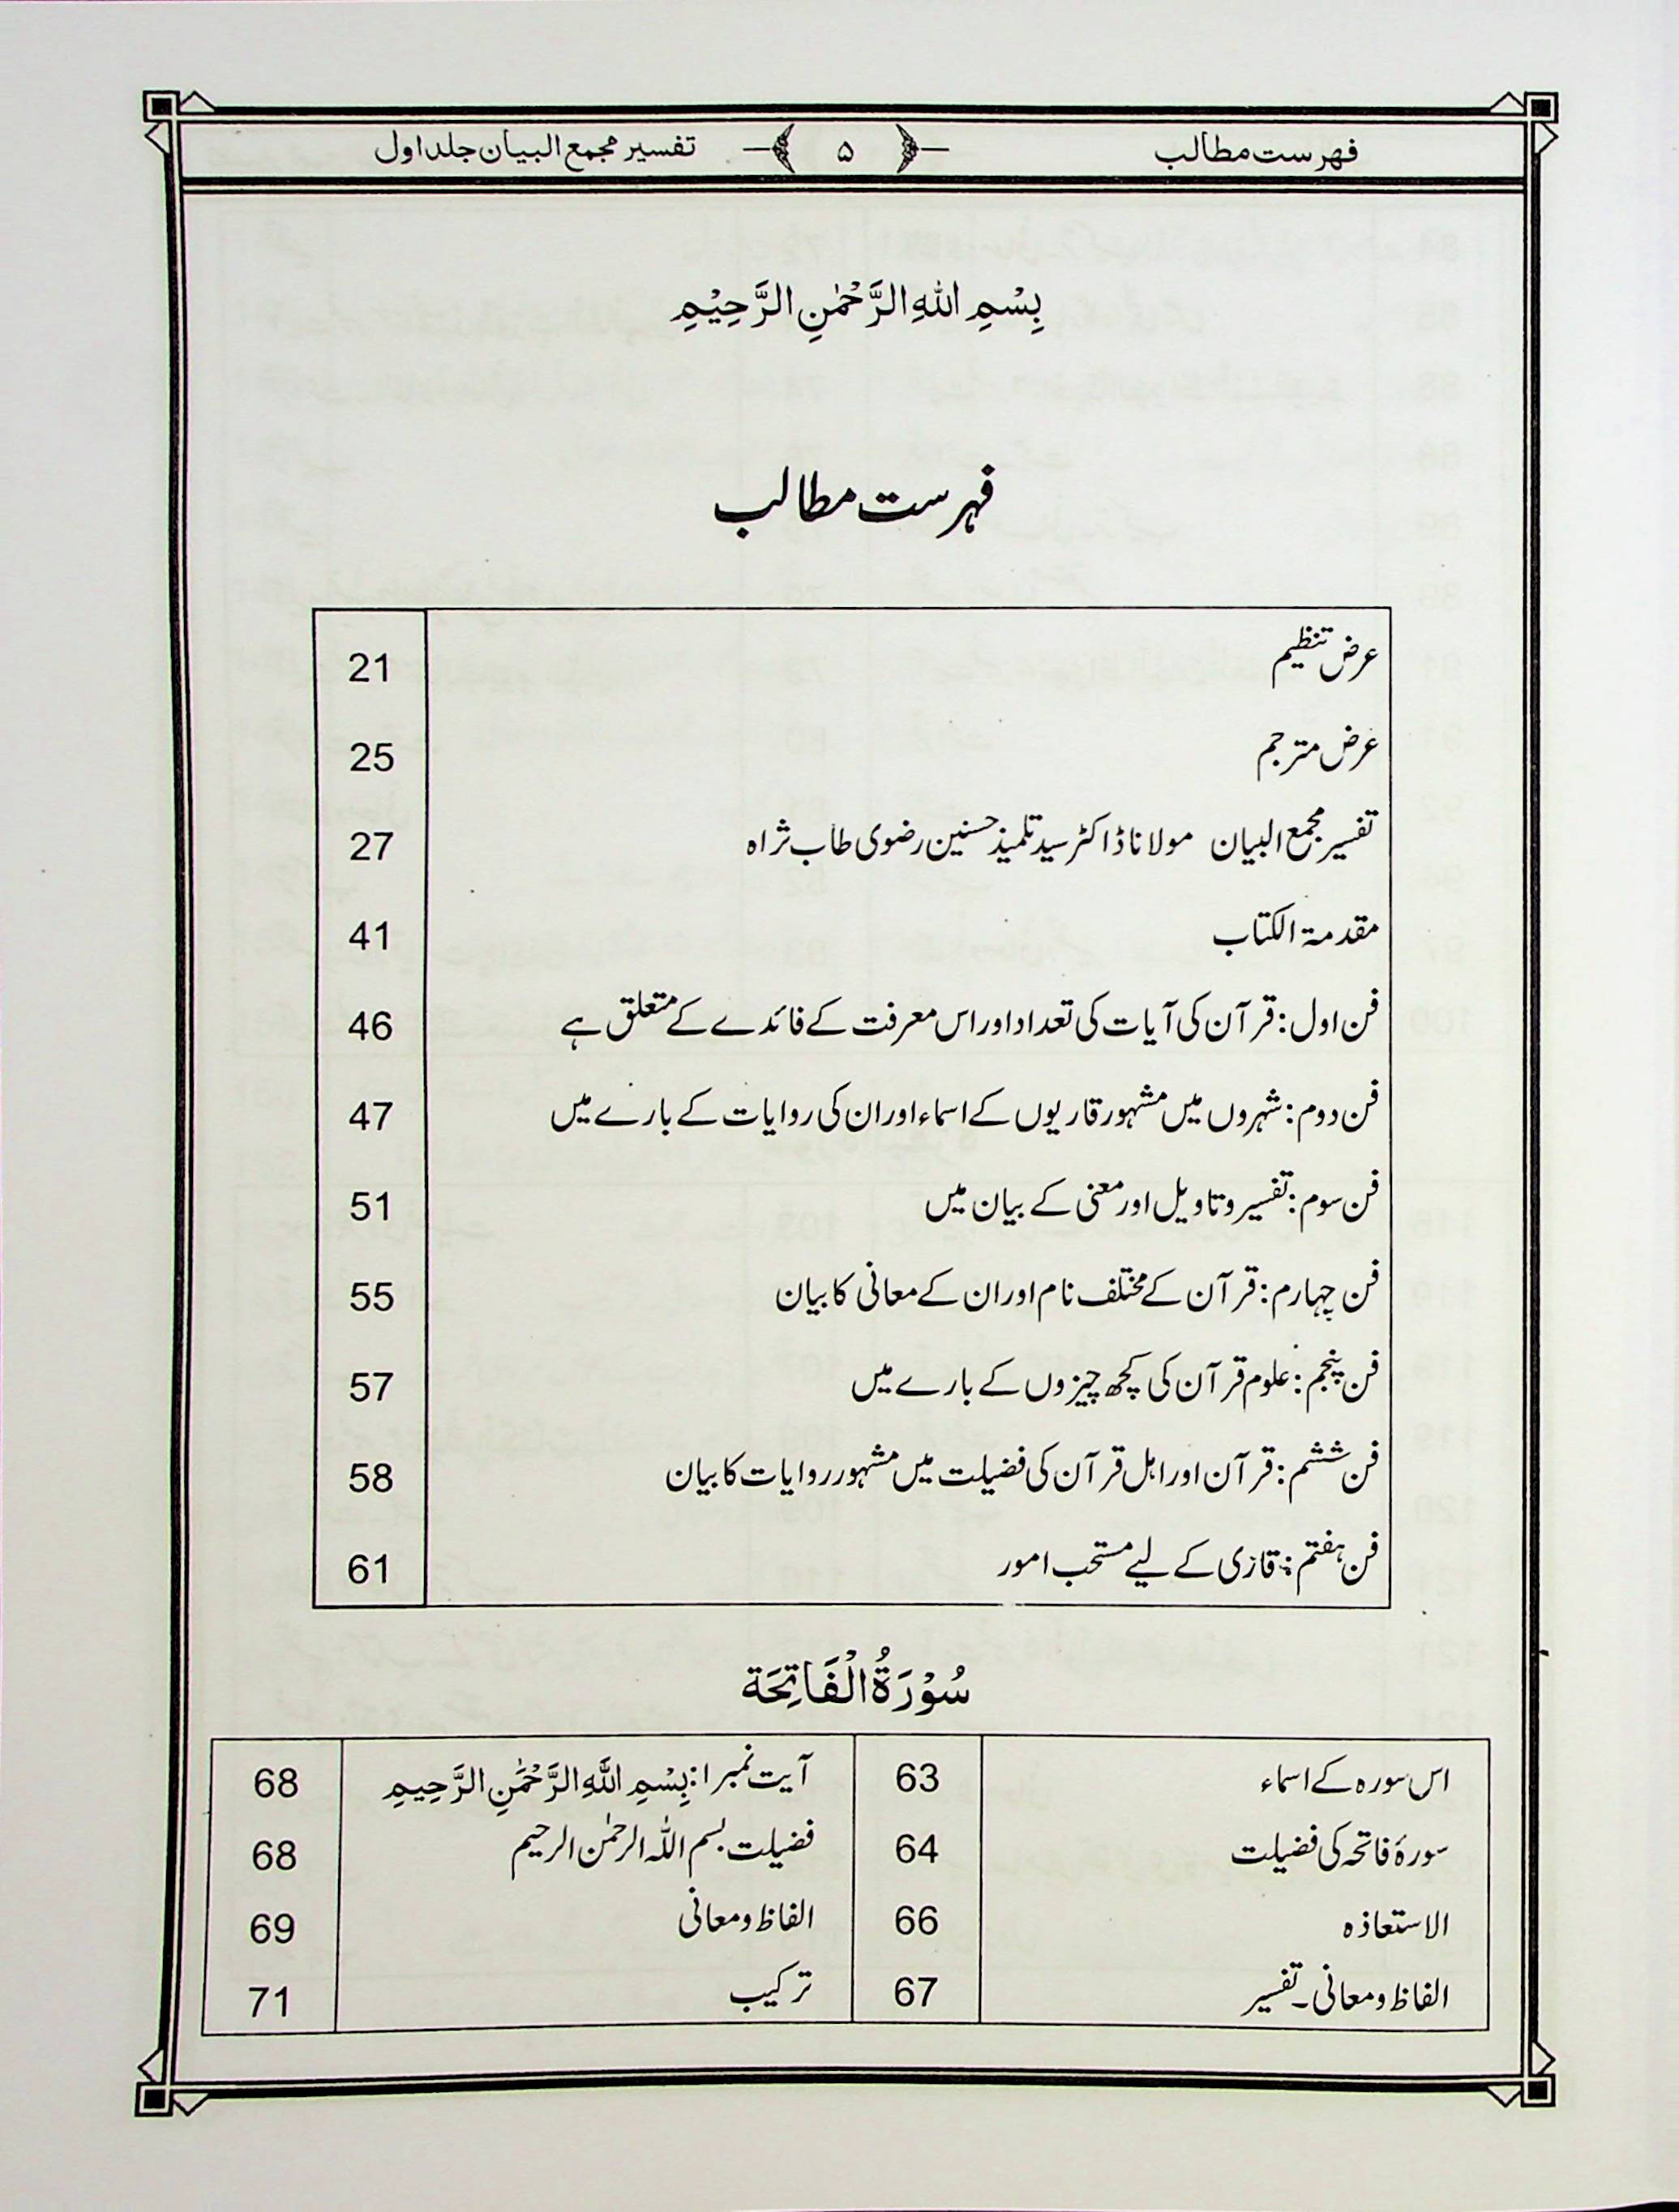 فہرست مطالب ۵ تفسیر مجمع البیان جلد اول
بِسْمِ اللهِ الرَّحْمٰنِ الرَّحِيْمِ
فہرست مطالب
عرض تنظیم 21
عرض مترجم 25
تفسیر مجمع البیان مولانا ڈاکٹر سید تلمیذ حسنین رضوی طاب ثراہ 27
مقدمۃ الکتاب 41
فن اول: قرآن کی آیات کی تعداد اور اس معرفت کے فائدے کے متعلق ہے 46
فن دوم: شہروں میں مشہور قاریوں کے اسماء اور ان کی روایات کے بارے میں 47
فن سوم: تفسیر و تاویل اور معنی کے بیان میں 51
فن چہارم: قرآن کے مختلف نام اور ان کے معانی کا بیان 55
فن پنجم: علوم قرآن کی کچھ چیزوں کے بارے میں 57
فن ششم: قرآن اور اہل قرآن کی فضیلت میں مشہور روایات کا بیان 58
فن ہفتم: قاری کے لیے مستحب امور 61
سُوْرَةُ الْفَاتِحَة
اس سورہ کے اسماء 63 آیت نمبر ۱: بِسْمِ اللَّهِ الرَّحْمَٰنِ الرَّحِيمِ 68
سورۂ فاتحہ کی فضیلت 64 فضیلت بسم اللہ الرحمٰن الرحیم 68
الاستعاذہ 66 الفاظ و معانی 69
الفاظ و معانی۔ تفسیر 67 ترکیب 71